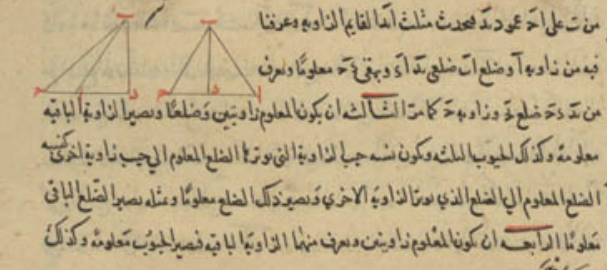 من ب على اجـ عمود بد فيحدث مثلث ابد القايم الزاوية وعرفنا
فيه من زاوية آ وضلع اب ضلعي بد اد ويبقى دجـ معلومًا ونعرف
من بد دجـ ضلع بجـ وزاوية جـ كما مر الثالثه ان يكون المعلوم زاويتين وضلعًا ونصير الزاوية الباقية
معلومة وكذلك الجيوب الثلثه وكون نسبه جيب الزاوية التي يوترها الضلع المعلوم الى جيب زاوية اخرى كنسبه
الضلع المعلوم الى الضلع الذي يوتر الزاوية الاخرى ونصير ذلك الضلع معلومًا وبمثله يصير الضلع الباقى
معلومًا الرابعه ان يكون المعلوم زاويتين ونعرف منهما الزاوية الباقية فيصير الجيوب معلومة وكذلك